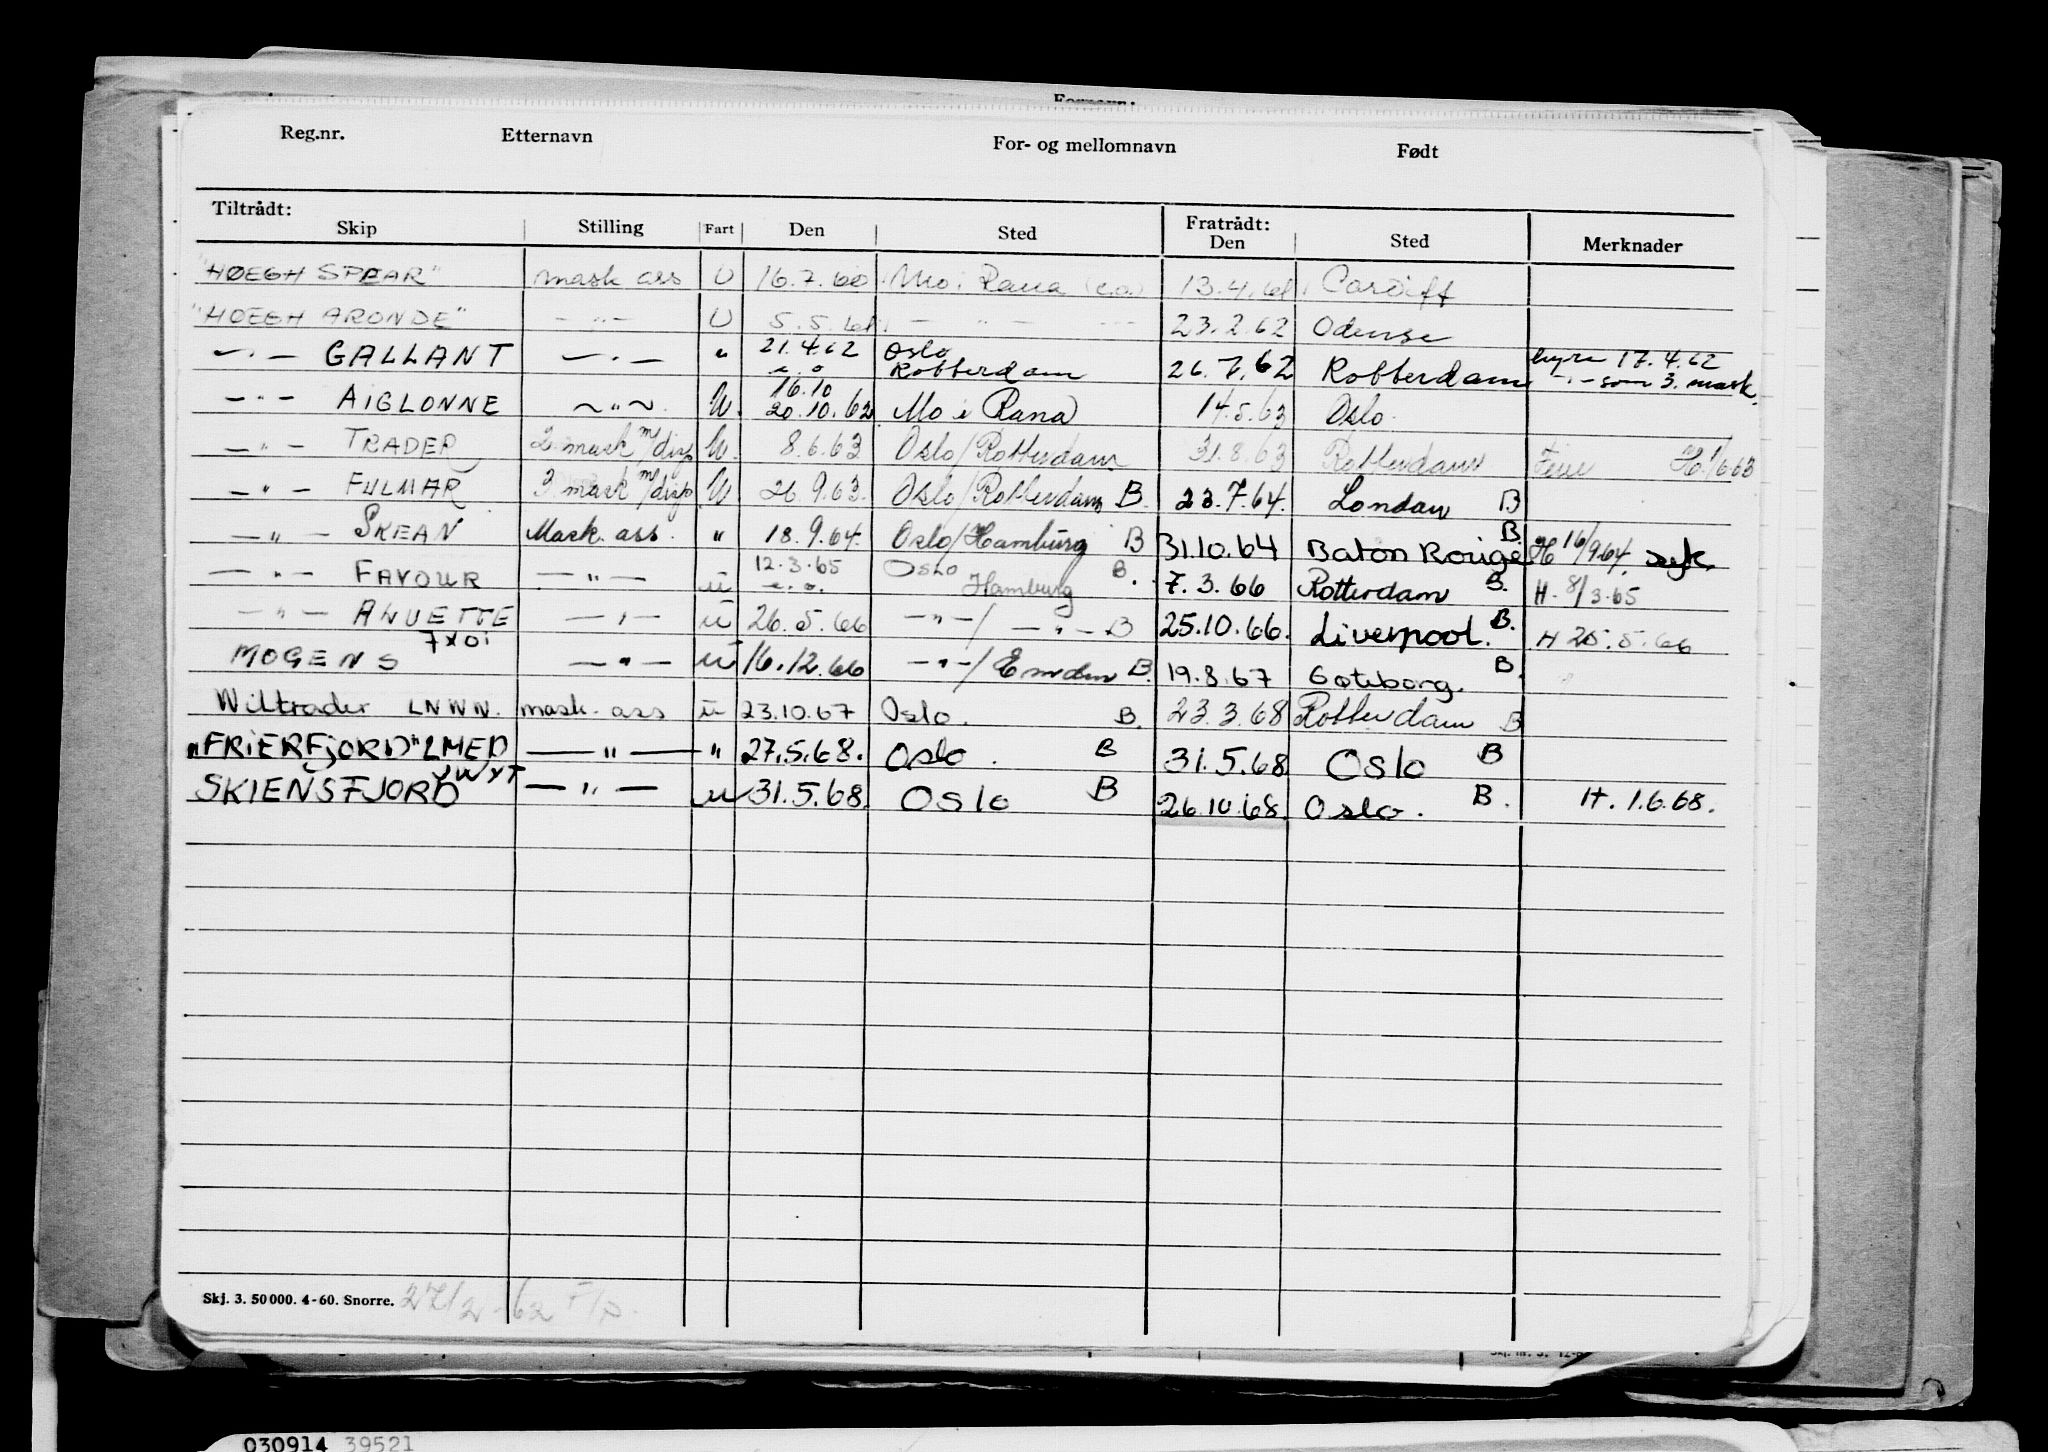 Fornavn:
Reg.nr. Etternavn For- og mellomnavn Født
Tiltrådt: Fratrådt:
Skip Stilling Fart Den Sted Den Sted Merknader
"HØEGH SPEAR" mask ass U 16.7.60 Mo i Rana (e.o.) 13.4.61 Cardiff
"HØEGH ARONDE" — " — U 5.5.61 — " — 23.2.62 Odense
— " — GALLANT — " — " 21.4.62 Oslo 26.7.62 Rotterdam hyre 17.4.62
e.o Rotterdam — " — som 3. mask.
— " — AIGLONNE ~ " ~ U. 16.10 20.10.62 Mo i Rana 14.5.63 Oslo.
— " — TRADER 2. mask m/disp U. 8.6.63 Oslo/Rotterdam 31.8.63 Rotterdam Ferie H. 1/6.63
— " — FULMAR 3. mask m/disp U 26.9.63. Oslo/Rotterdam B. 23.7.64. London B
— " — SKEAN Mask. ass. " 18.9.64. Oslo/Hamburg B 31.10.64 Baton Rouge B. H 16/9.64. syk.
— " — FAVOUR — " — u 12.3.65 e.o. Oslo Hamburg B. 7.3.66 Rotterdam B. H. 8/3.65
— " — ANUETTE — " — u 26.5.66 — " —/ — " — B 25.10.66. Liverpool. B. H 25.5.66
MOGENS 7XOI — " — u 16.12.66 — " —/ Emden B. 19.8.67 Göteborg. B.
Wiltrader LNWN. mask. ass u 23.10.67 Oslo. B. 23.3.68 Rotterdam B
"FRIERFJORD" LMED — " — " 27.5.68. Oslo. B 31.5.68 Oslo B
SKIENSFJORD JWXT — " — u 31.5.68. Oslo B 26.10.68. Oslo. B. H. 1.6.68.
Skj. 3. 50 000. 4-60. Snorre. 27/2-62
030914 39521